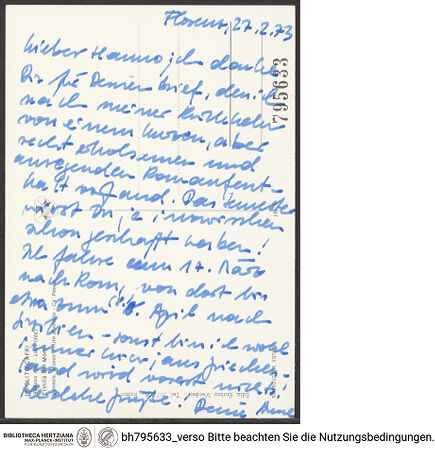 Florenz, 27.2.73
Lieber Hanno, ich danke
Dir für Deinen Brief, den ich
nach meiner Rückkehr
von einem kurzen, aber
recht erholsamen und
anregenden Romaufent-
halt vorfand. Das Semester
wirst Du ja inzwischen
schon geschafft haben!
Ich fahre am 17. März
nach Rom, von dort bis
etwa zum 8. April nach
Sizilien - sonst bin ich wohl
immer hier,
und wird vorerst nichts!
Herzliche Grüße! Deine Anne
795633
BIBLIOTHECA HERTZIANA
MAX-PLANCK-INSTITUT
FÜR KUNSTGESCHICHTE
bh795633_verso Bitte beachten Sie die Nutzungsbedingungen.